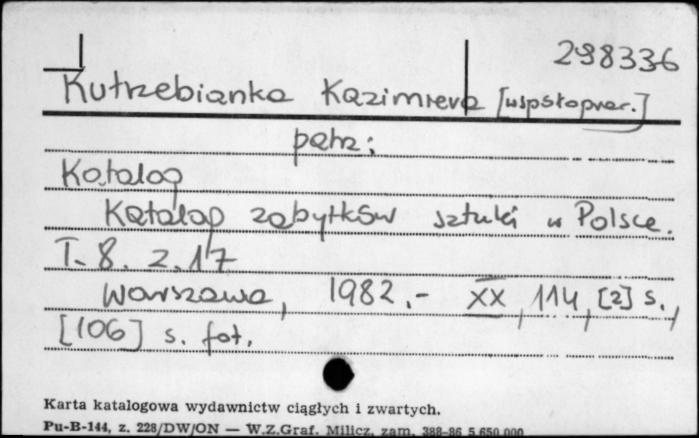 298336
Kutrzebianka Kazimiera [współoprac.]
patrz:
Katalog
Katalog zabytków sztuki w Polsce.
T. 8. z. 17
Warszawa, 1982.- XX, 114, [2] s.,
[106] s. fot.
Karta katalogowa wydawnictw ciągłych i zwartych.
Pu-B-144, z. 228/DW/ON — W.Z.Graf. Milicz, zam. 388-86 5.650.000